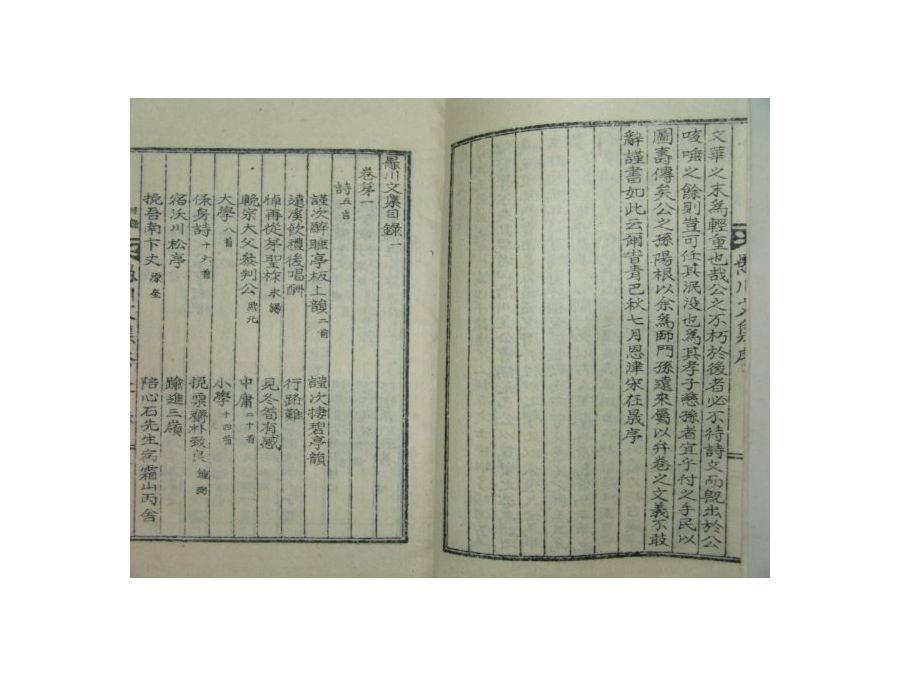 文華之末爲輕重也哉公之不朽於後者必不待詩文而旣出於公
咳唾之餘則豈可任其泯没也爲其孝子慈孫者宜乎付之手民以
圖壽傳矣公之孫陽根以余爲師門孫遠來屬以弁卷之文義不敢
辭謹書如此云爾昔靑巴秋七月恩津宋在晟序
愚川文集序
愚川文集目錄一
卷第一
詩五言
謹次醉睡亭板上韻二首 謹次棲碧亭韻
遠溪飮禮後唱酬 行路難
悼再從茅聖柞永錫 見冬筍有感
輓宗大父參判公熙元 中庸二十首
大學八首 小學十四首
保身詩十六首 挽栗齋朴致良鍾弼
宿沃川松亭 踰進三嶺
挽吾南卞丈 陪心石先生宿霜山丙舍
目錄